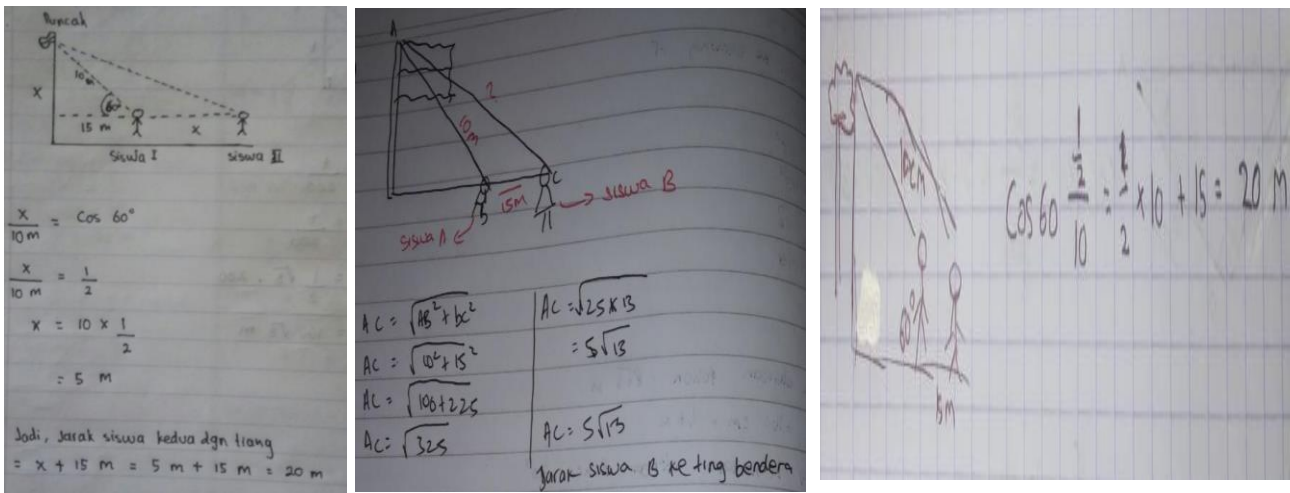 Puncak
10 m
60°
x
15 m
x
siswa I
siswa II
x/10 m = Cos 60°
x/10 m = 1/2
x = 10 x 1/2
= 5 m
Jadi, Jarak siswa kedua dgn tiang
= x + 15 m = 5 m + 15 m = 20 m
A
?
10 m
C
B
15M
siswa B
siswa A
AC = √AB² + bc²
AC = √10² + 15²
AC = √100 + 225
AC = √325
AC = √25 x 13
= 5√13
AC = 5√13
Jarak siswa B ke ting bendera
60°
15M
Cos 60 1/2/10 = 1/2 x 10 + 15 = 20 M